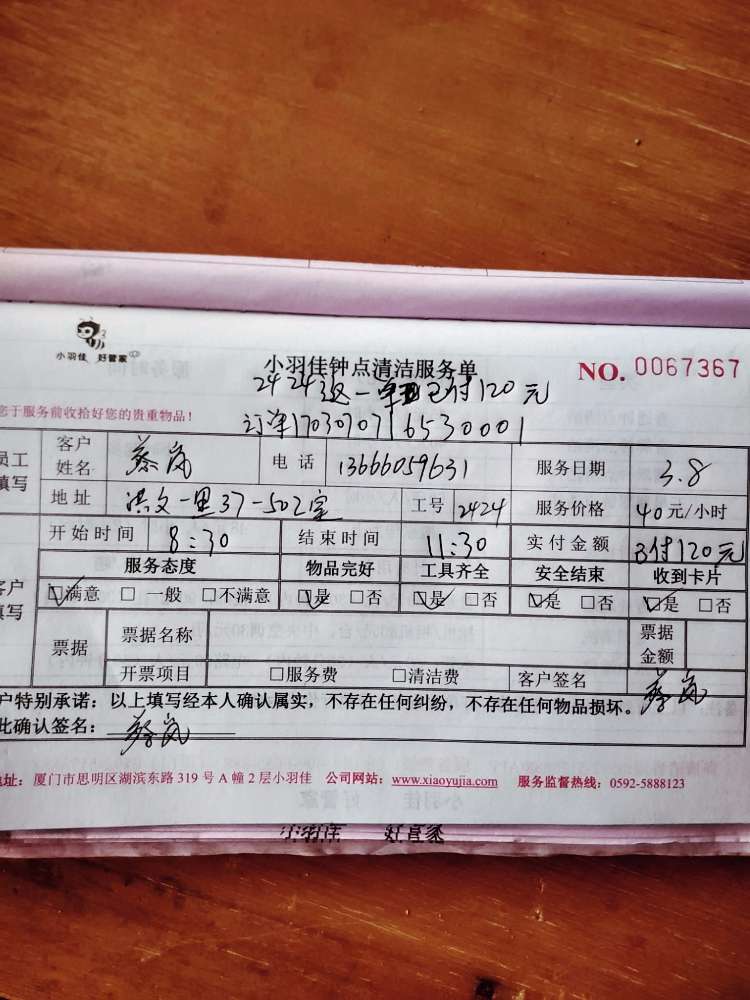 小羽佳 好管家
小羽佳钟点清洁服务单
NO. 0067367
2424返一单已付120元
您于服务前收拾好您的贵重物品!
订单1703070716530001
员工填写
客户姓名 蔡岚 电话 13666059631 服务日期 3.8
地址 洪文一里37-502室 工号 2424 服务价格 40元/小时
开始时间 8:30 结束时间 11:30 实付金额 已付120元
客户填写
服务态度 物品完好 工具齐全 安全结束 收到卡片
☑满意 □一般 □不满意 ☑是 □否 ☑是 □否 ☑是 □否 ☑是 □否
票据 票据名称 票据金额
开票项目 □服务费 □清洁费 客户签名 蔡岚
户特别承诺:以上填写经本人确认属实,不存在任何纠纷,不存在任何物品损坏。
此确认签名:蔡岚
地址:厦门市思明区湖滨东路319号A幢2层小羽佳 公司网站:www.xiaoyujia.com 服务监督热线:0592-5888123
小羽佳 好管家